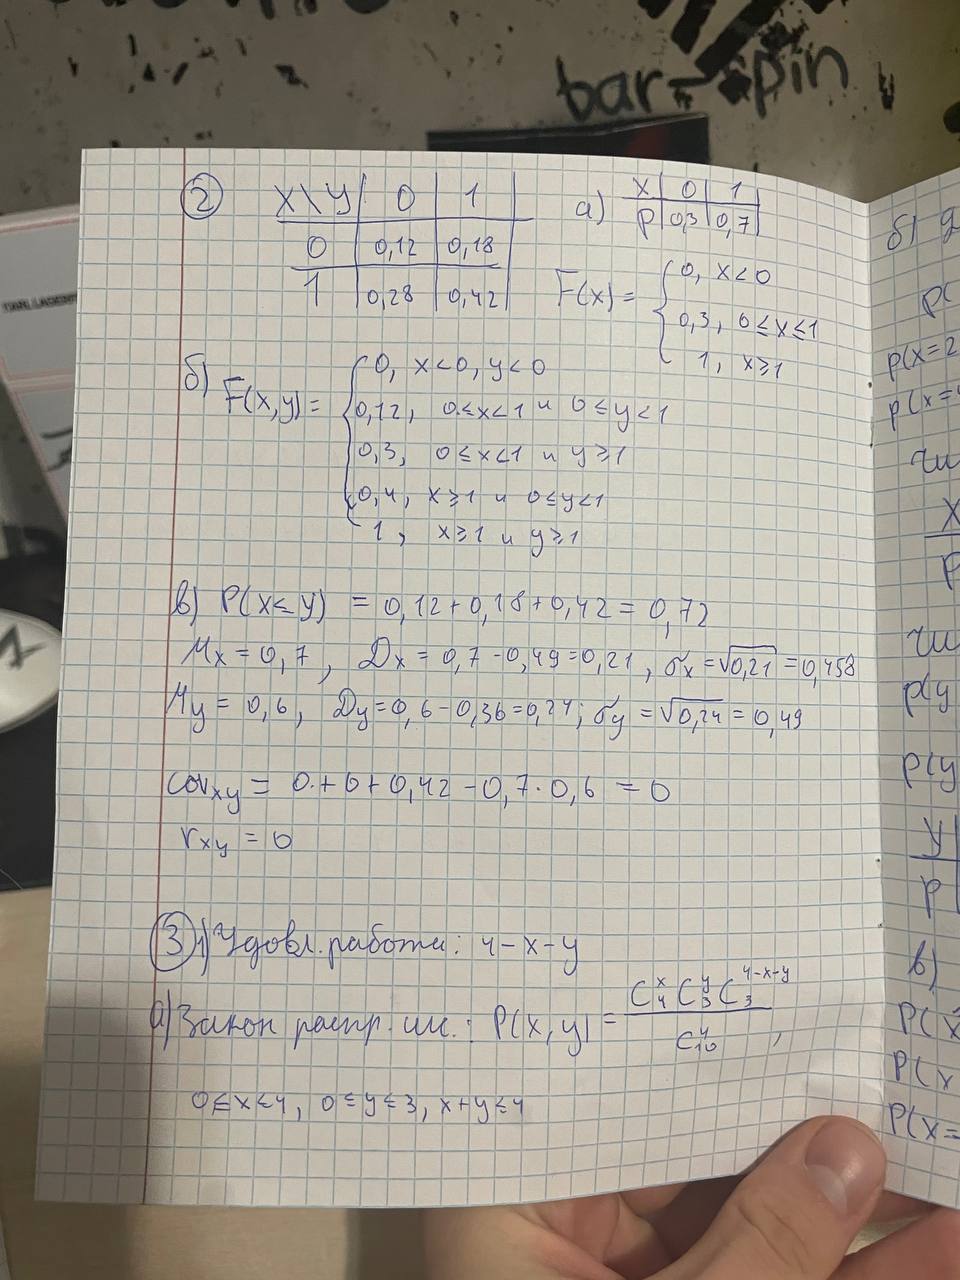 bar-spin
② X\Y 0 1
0 0,12 0,18
1 0,28 0,42
а) X 0 1
P 0,3 0,7
F(x) = { 0, x<0
0,3, 0≤x≤1
1, x≥1
б) F(x,y) = { 0, x<0, y<0
0,12, 0≤x<1 и 0≤y<1
0,3, 0≤x<1 и y≥1
0,4, x≥1 и 0≤y<1
1, x≥1 и y≥1
в) P(X≤Y) = 0,12+0,18+0,42=0,72
Mx = 0,7, Dx = 0,7-0,49=0,21, σx=√0,21=0,458
My = 0,6, Dy=0,6-0,36=0,24; σy=√0,24=0,49
cov xy = 0+0+0,42-0,7·0,6 = 0
r xy = 0
③ 1) Удовл. работы: 4-x-y
а) Закон распр. ис.: P(x,y) = C₄ˣ C₃ʸ C₃⁴⁻ˣ⁻ʸ / C₁₀⁴,
0≤x≤4, 0≤y≤3, x+y≤4
б)
P(
P(X=2
P(X=
X
P
P(y
P(y
y
P
в)
P(X
P(X
P(X=